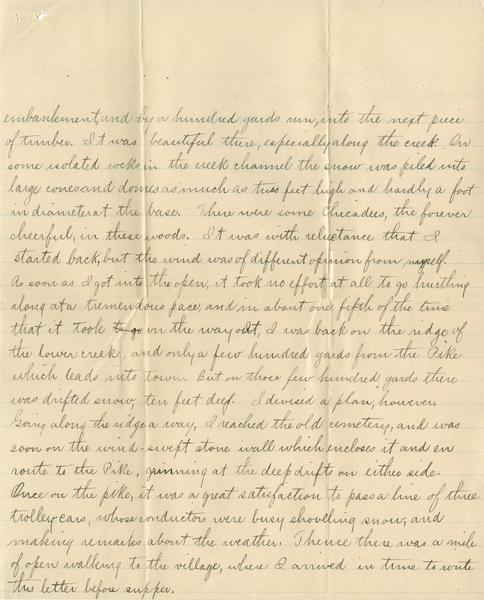 embankment, and by a hundred yards run, into the next piece
of timber. It was beautiful there, especially along the creek. On
some isolated rocks in the creek channel the snow was piled into
large cones and domes as much as two feet high and hardly a foot
in diameter at the base. There were some Chicadees, the forever
cheerful, in these woods. It was with reluctance that I
started back, but the wind was of different opinion from myself.
As soon as I got into the open, it took no effort at all to go hurtling
along at a tremendous pace, and in about one fifth of the time
that it took to go on the way out, I was back on the ridge of
the lower creek, and only a few hundred yards from the Pike
which leads into town. But on those few hundred yards there
was drifted snow, ten feet deep. I devised a plan, however.
Going along the ridge a way, I reached the old cemetery, and was
soon on the wind-swept stone wall which encloses it and en
route to the Pike, grinning at the deep drifts on either side.
Once on the pike, it was a great satisfaction to pass a line of three
trolley cars, whose conductors were busy shovelling snow, and
making remarks about the weather. Thence there was a mile
of open walking to the village, where I arrived in time to write
this letter before supper.